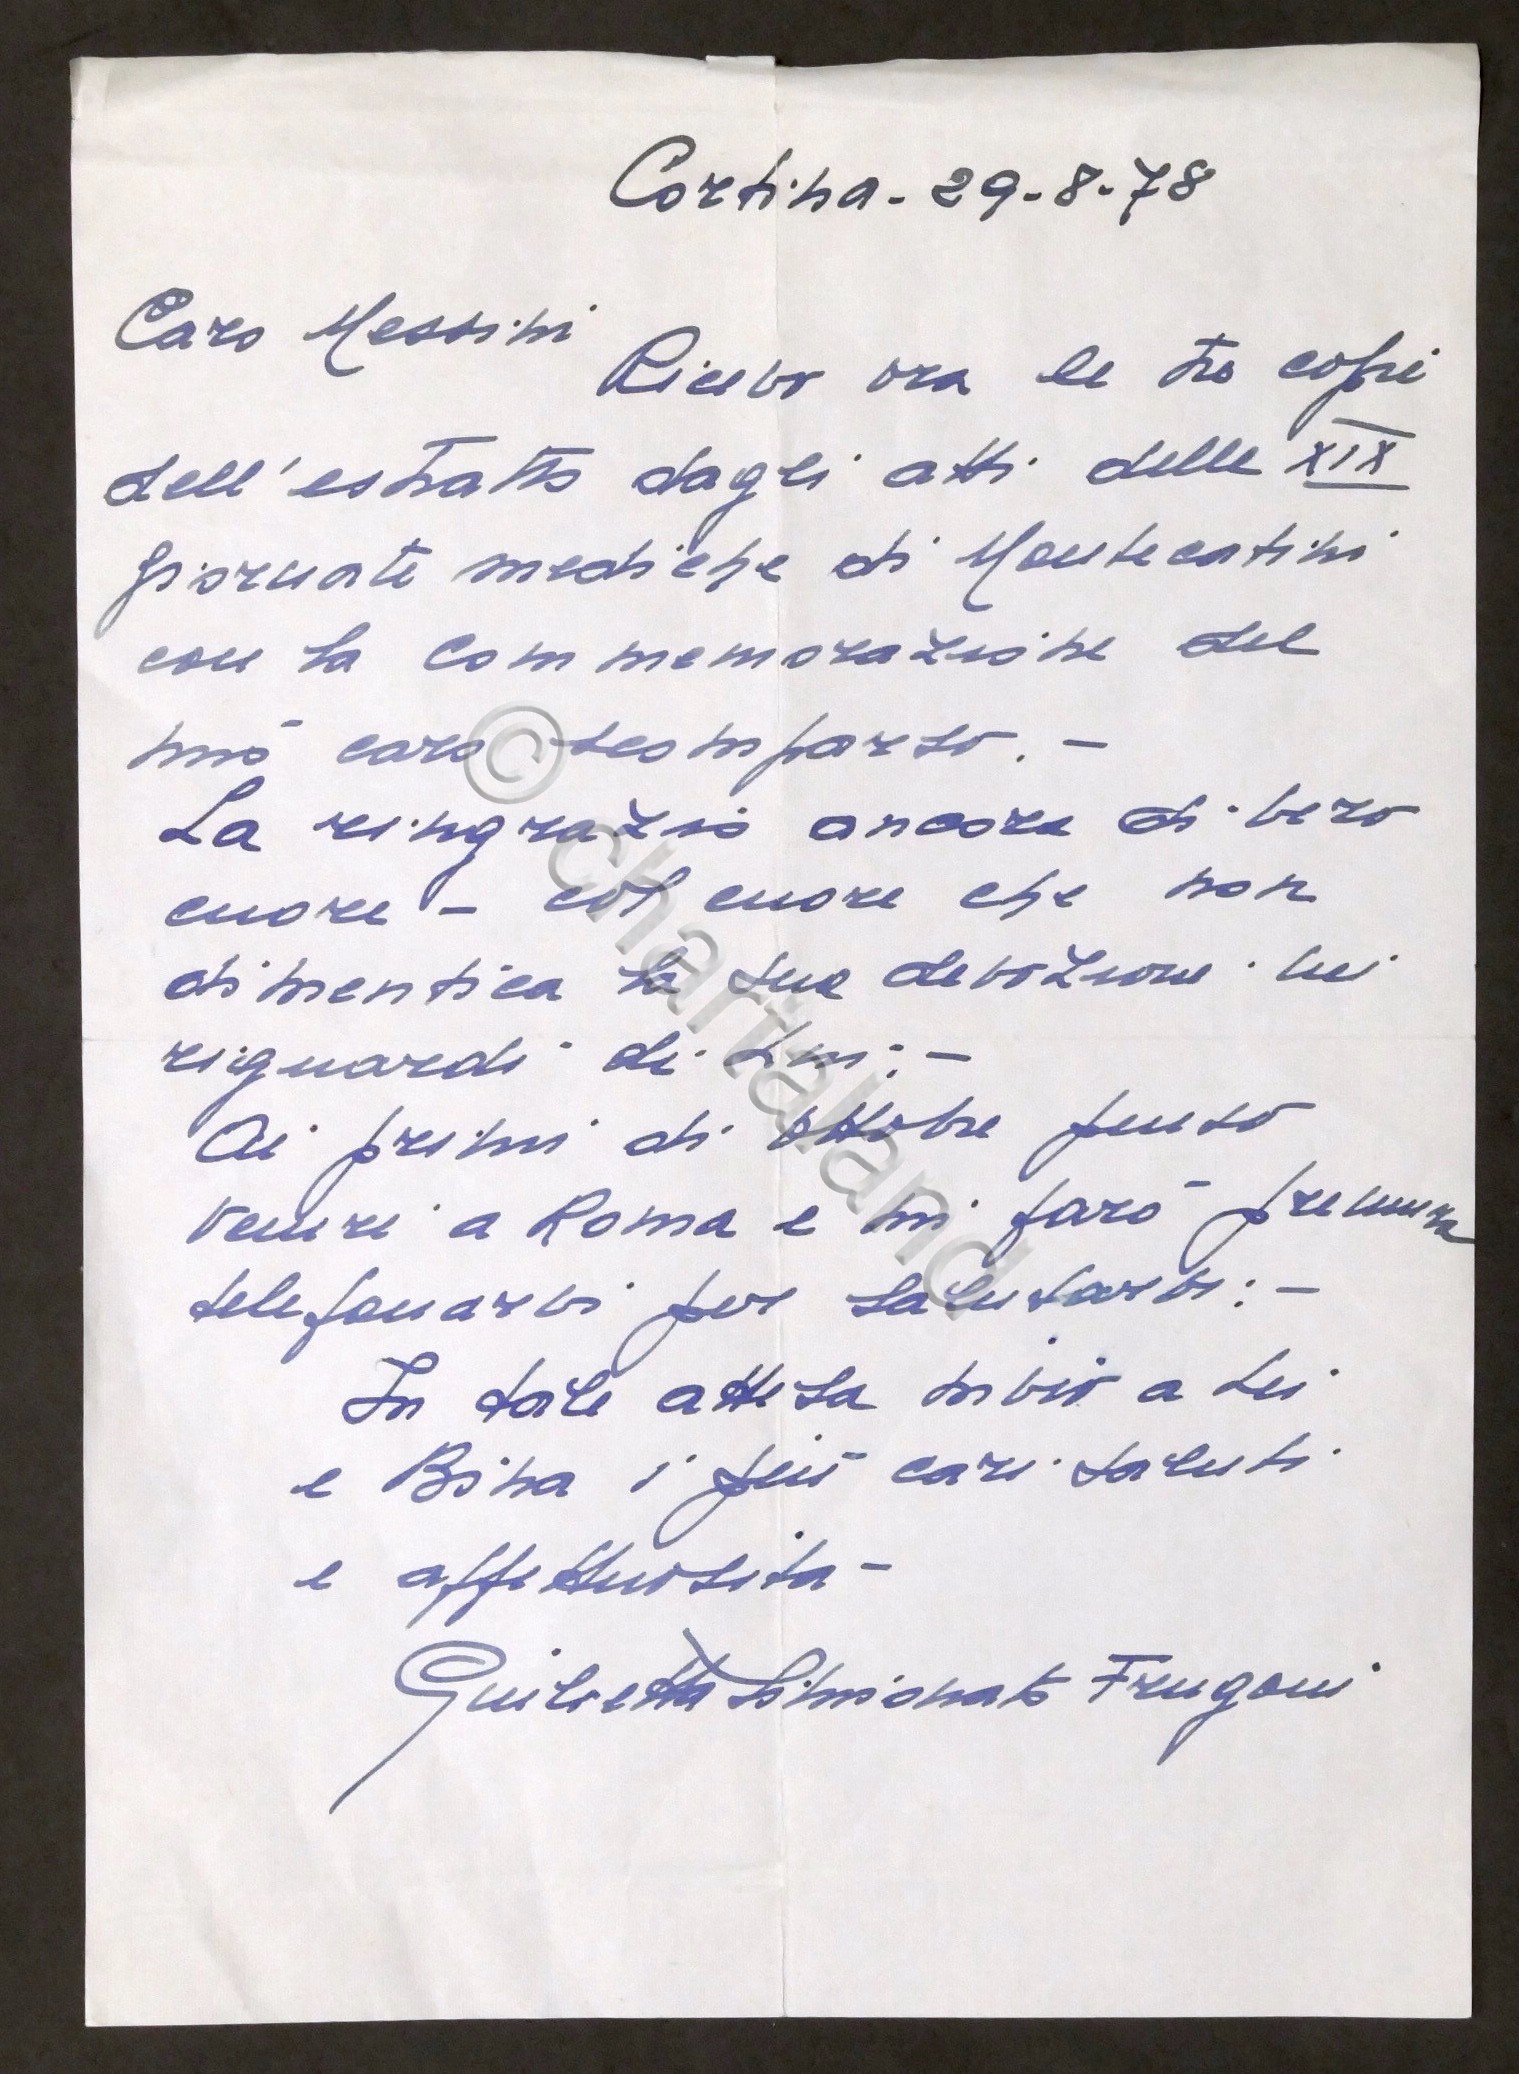 Cortina - 29-8-78
Caro Messini
Ricevo ora le tre copie
dell'estratto dagli atti delle XIX
giornate mediche di Montecatini
con la commemorazione del
mio caro scomparso. -
La ringrazio ancora di vero
cuore - col cuore che non
dimentica la sua devozione nei
riguardi di Lui. -
Ai primi di ottobre penso
venire a Roma e mi farò premura
telefonarvi per salutarvi. -
In tale attesa invio a Lei
e Bina i più cari saluti
e affettuosità -
Giulietta Simionato Frugoni
© chartaland